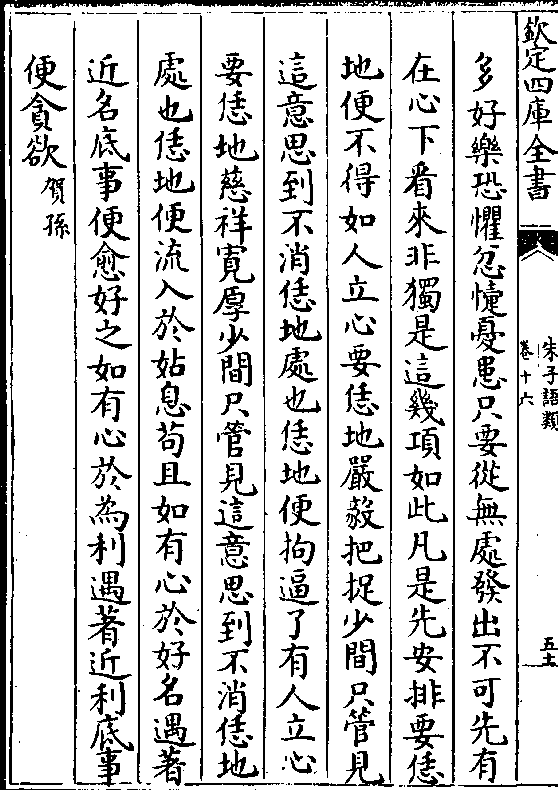 欽定四庫全書
朱子語類
卷十六
五十
多好樂恐懼忿懥憂患只要從無處發出不可先有
在心下看來非獨是這幾項如此凡是先安排要恁
地便不得如人立心要恁地嚴毅把捉少間只管見
這意思到不消恁地處也恁地便拘逼了有人立心
要恁地慈祥寛厚少間只管見這意思到不消恁地
處也恁地便流入於姑息苟且如有心於好名遇著
近名底事便愈好之如有心於為利遇著近利底事
便貪欲賀孫